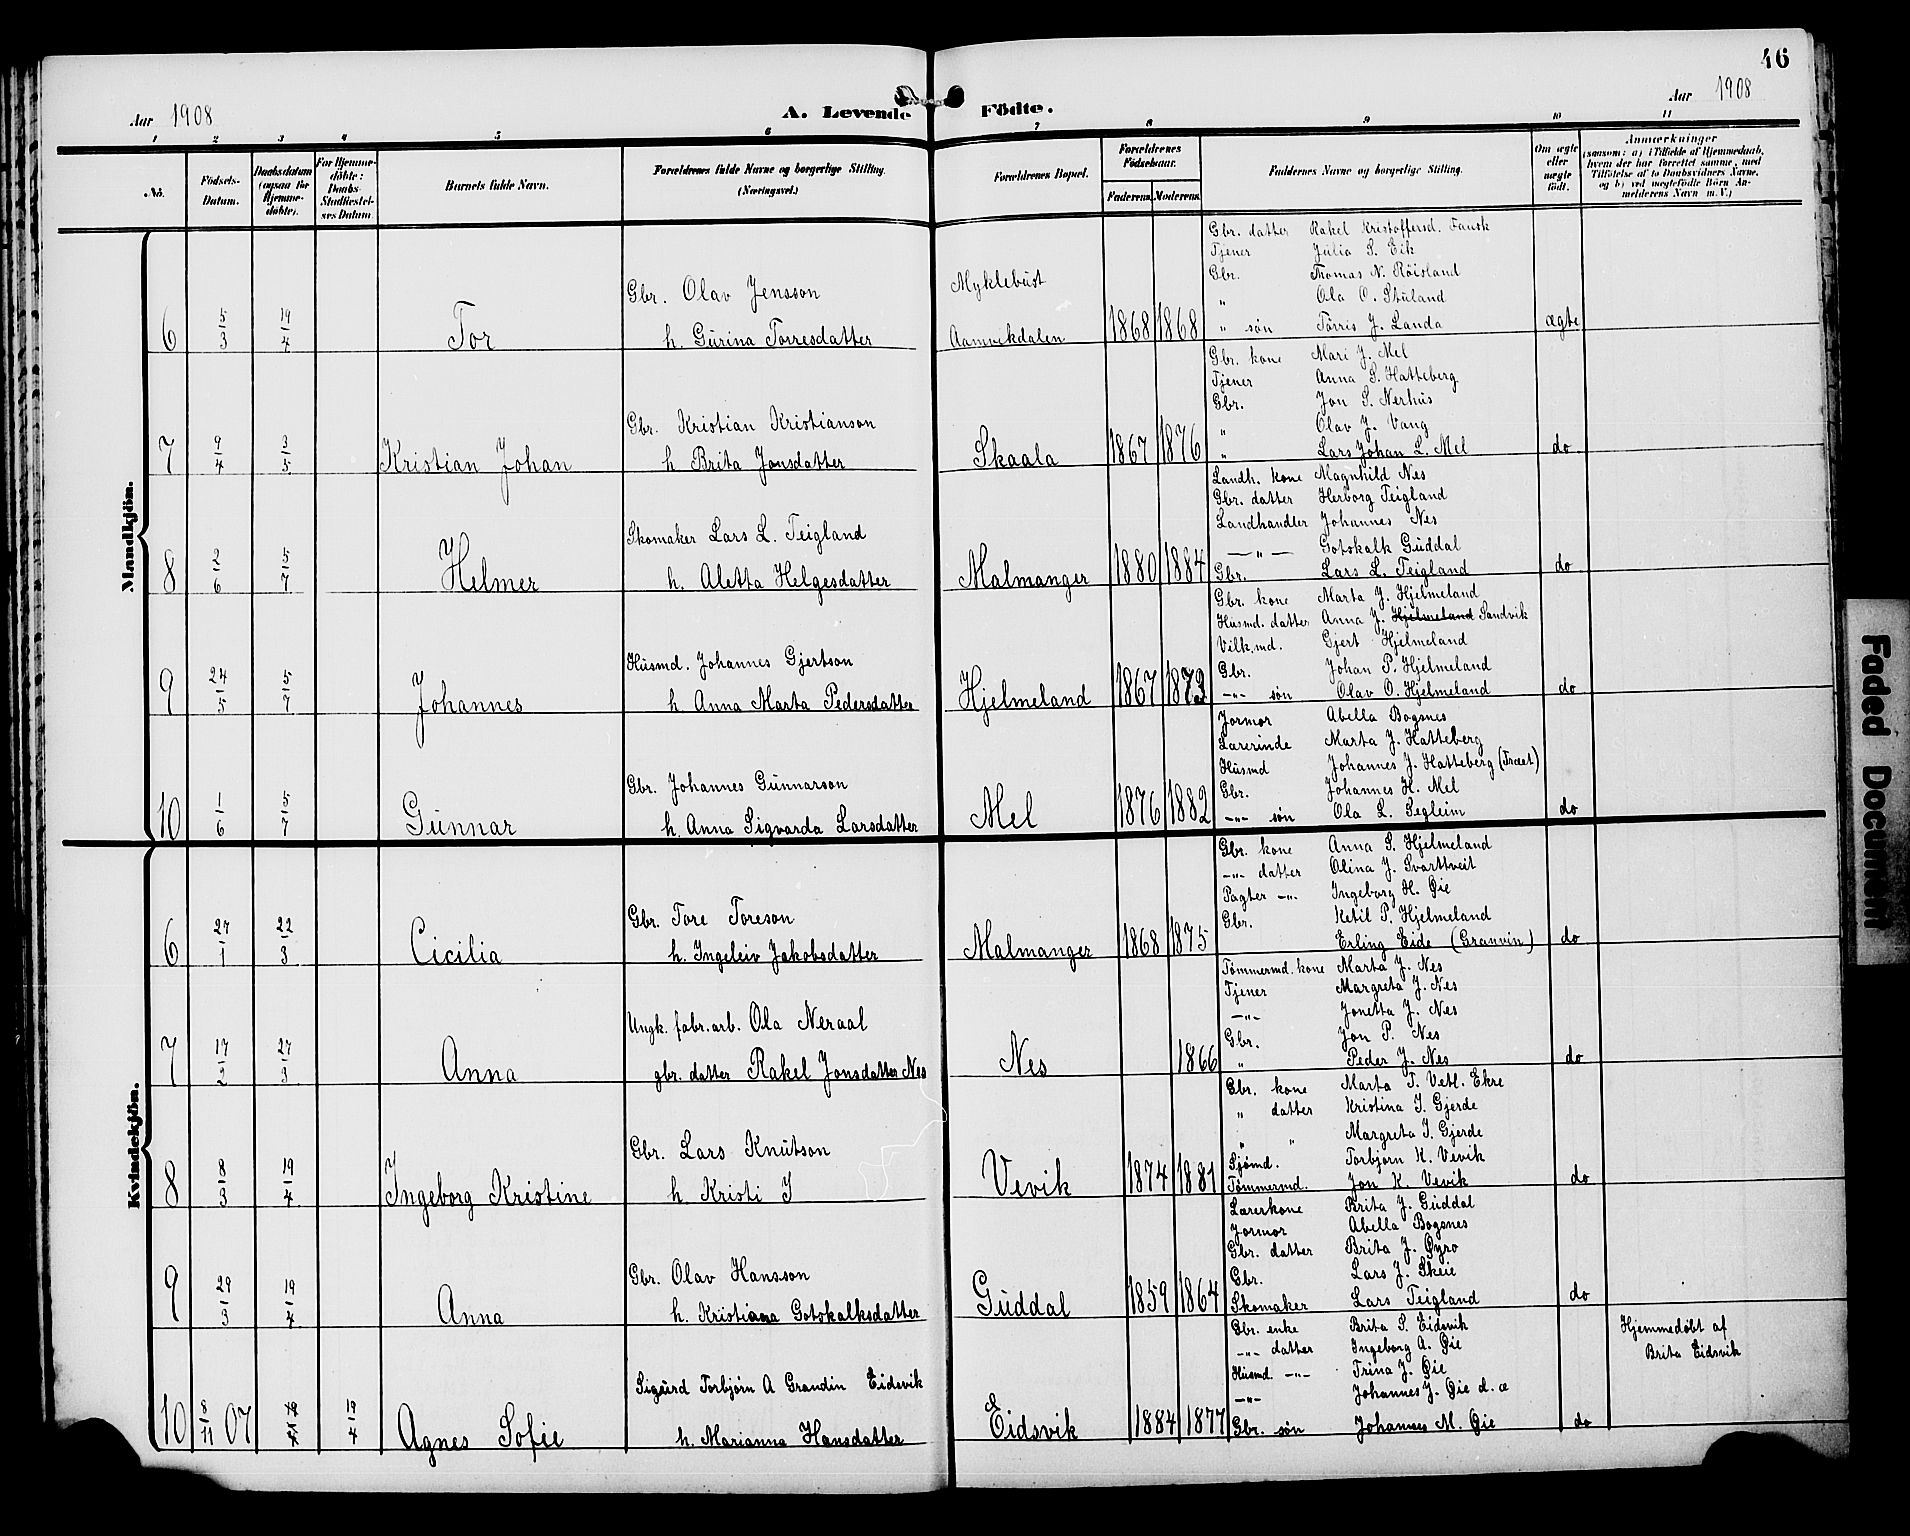 46
Aar 1908
A. Levende Födte.
Aar 1908
1 2 3 4 5 6 7 8 9 10 11
No.
Födsels-Datum.
Daabsdatum (ogsaa for Hjemmedöbte).
For Hjemmedöbte: Daabs-Stadfæstelses Datum
Barnets fulde Navn.
Forældrenes fulde Navne og borgerlige Stilling. (Næringsvei.)
Forældrenes Bopæl.
Forældrenes Födselsaar.
Faderens Moderens
Faddernes Navne og borgerlige Stilling.
Om ægte eller uægte födt.
Anmærkninger
(saasom: a) i Tilfælde af Hjemmedaab, hvem der har forrettet samme, med Tilföielse af to Daabsvidners Navne, og b) ved uegtefödte Börn Anmelderens Navn m.V.)
Mandkjön.
6 5/3 19/4 Tor
Gbr. Olav Jensson
h. Gurina Torresdatter
Myklebust
Aamvikdalen 1868 1868
Gbr. datter Rakel Kristoffersd. Fausk
Tjener Julia S. Eik
Gbr. Thomas N. Röisland
" Ola O. Stuland
" søn Törris J. Landa ægte
7 9/4 3/5 Kristian Johan
Gbr. Kristian Kristianson
h Brita Jonsdatter
Skaala 1867 1876
Gbr. kone Mari J. Mel
Tjener Anna S. Hatteberg
Gbr. Jon S. Nerhus
" Olav J. Vang
" Lars Johan L. Mel do
8 2/6 5/7 Helmer
Skomaker Lars L. Teigland
h. Aletta Helgesdatter
Malmanger 1880 1884
Landh. kone Magnhild Nes
Gbr. datter Herborg Teigland
Landhandler Johannes Nes
—"— Gotskalk Guddal
Gbr. Lars L. Teigland do
9 24/5 5/7 Johannes
Husmd. Johannes Gjertson
h Anna Marta Pedersdatter
Hjelmeland 1867 1873
Gbr. kone Marta J. Hjelmeland
Husmd. datter Anna J. Hjelmeland Sandvik
Vilk.md. Gjert Hjelmeland
Gbr. Johan P. Hjelmeland
—"— søn Olav O. Hjelmeland do
10 1/6 5/7 Gunnar
Gbr. Johannes Gunnarson
h. Anna Sigvarda Larsdatter
Mel 1876 1882
Jormor Abella Bogsnes
Lærerinde Marta J. Hatteberg
Husmd Johannes J. Hatteberg (Træet)
Gbr. Johannes H. Mel
—"— søn Ola L. Segleim do
Kvindekjön.
6 27/1 22/3 Cicilia
Gbr. Tore Toreson
h. Ingeleiv Jakobsdatter
Malmanger 1868 1875
Gbr. kone Anna S. Hjelmeland
—"— datter Olina J. Svarttveit
Pagter —"— Ingeborg H. Øie
Gbr. Ketil P. Hjelmeland
Erling Eide (Granvin) do
7 17/2 27/3 Anna
Ungk. fabr.arb. Ola Neraal
gbr. datter Rakel Jonsdatter Nes
Nes 1866
Tømmermd. kone Marta J. Nes
Tjener Margreta J. Nes
—"— Jonetta J. Nes
Gbr. Jon P. Nes
" Peder J. Nes do
8 8/3 19/4 Ingeborg Kristine
Gbr. Lars Knutson
h Kristi J
Vevik 1874 1881
Gbr. kone Marta T. Vetl. Ekre
" datter Kristina I. Gjerde
" " Margreta I. Gjerde
Sjømd. Torbjørn K. Vevik
Tømmermd. Jon K. Vevik do
9 29/3 19/4 Anna
Gbr. Olav Hansson
h. Kristiana Gotskalksdatter
Guddal 1859 1864
Lærerkone Brita J. Guddal
Jormor Abella Bogsnes
Gbr. datter Brita J. Øyro
Gbr. Lars J. Skeie
Skomaker Lars Teigland do
10 8/11 07 19/4 19/4 Agnes Sofie
Sigurd Torbjørn A Grandin Eidsvik
h. Marianna Hansdatter
Eidsvik 1884 1877
Gbr. enke Brita S. Eidsvik
—"— datter Ingeborg A. Øie
Husmd —"— Trina J. Øie
—"— Johannes J. Øie d. æ
Gbr. søn Johannes M. Øie do
Hjemmedøbt af
Brita Eidsvik
Faded Document